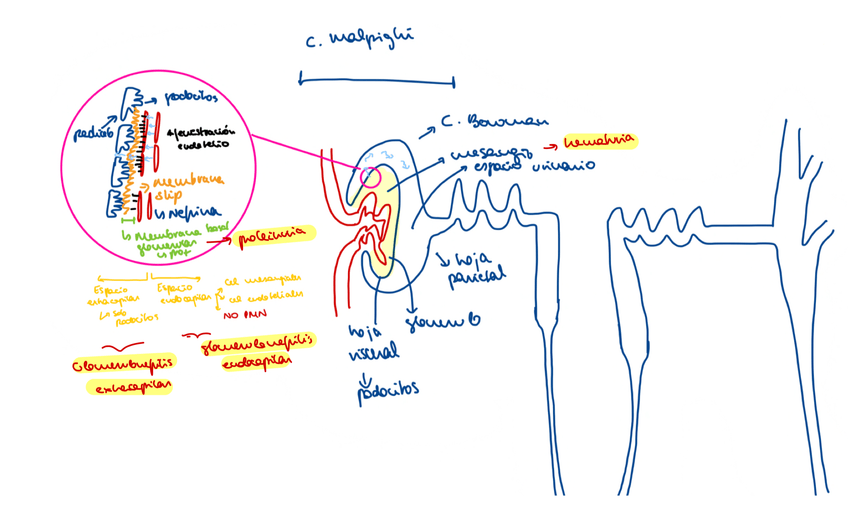 C. Malpighi
podocitos
pedicitos
fenestración
endotelio
membrana
slip
↳ Nefrina
↳ membrana basal
glomerular
→ proteinuria
C. Bowman
mesangio → hematuria
espacio urinario
↓ hoja
parietal
glomerulo
hoja
visceral
↓
podocitos
Espacio
extracapilar
↳ solo
podocitos
Espacio
endocapilar
cel mesangiales
cel endoteliales
NO PMN
Glomerulonefritis
extracapilar
glomerulonefritis
endocapilar